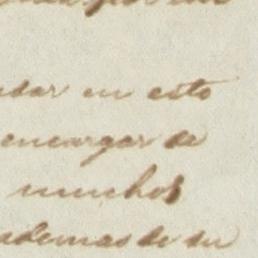 dar en esto
encargar de
muchos
ademas de su